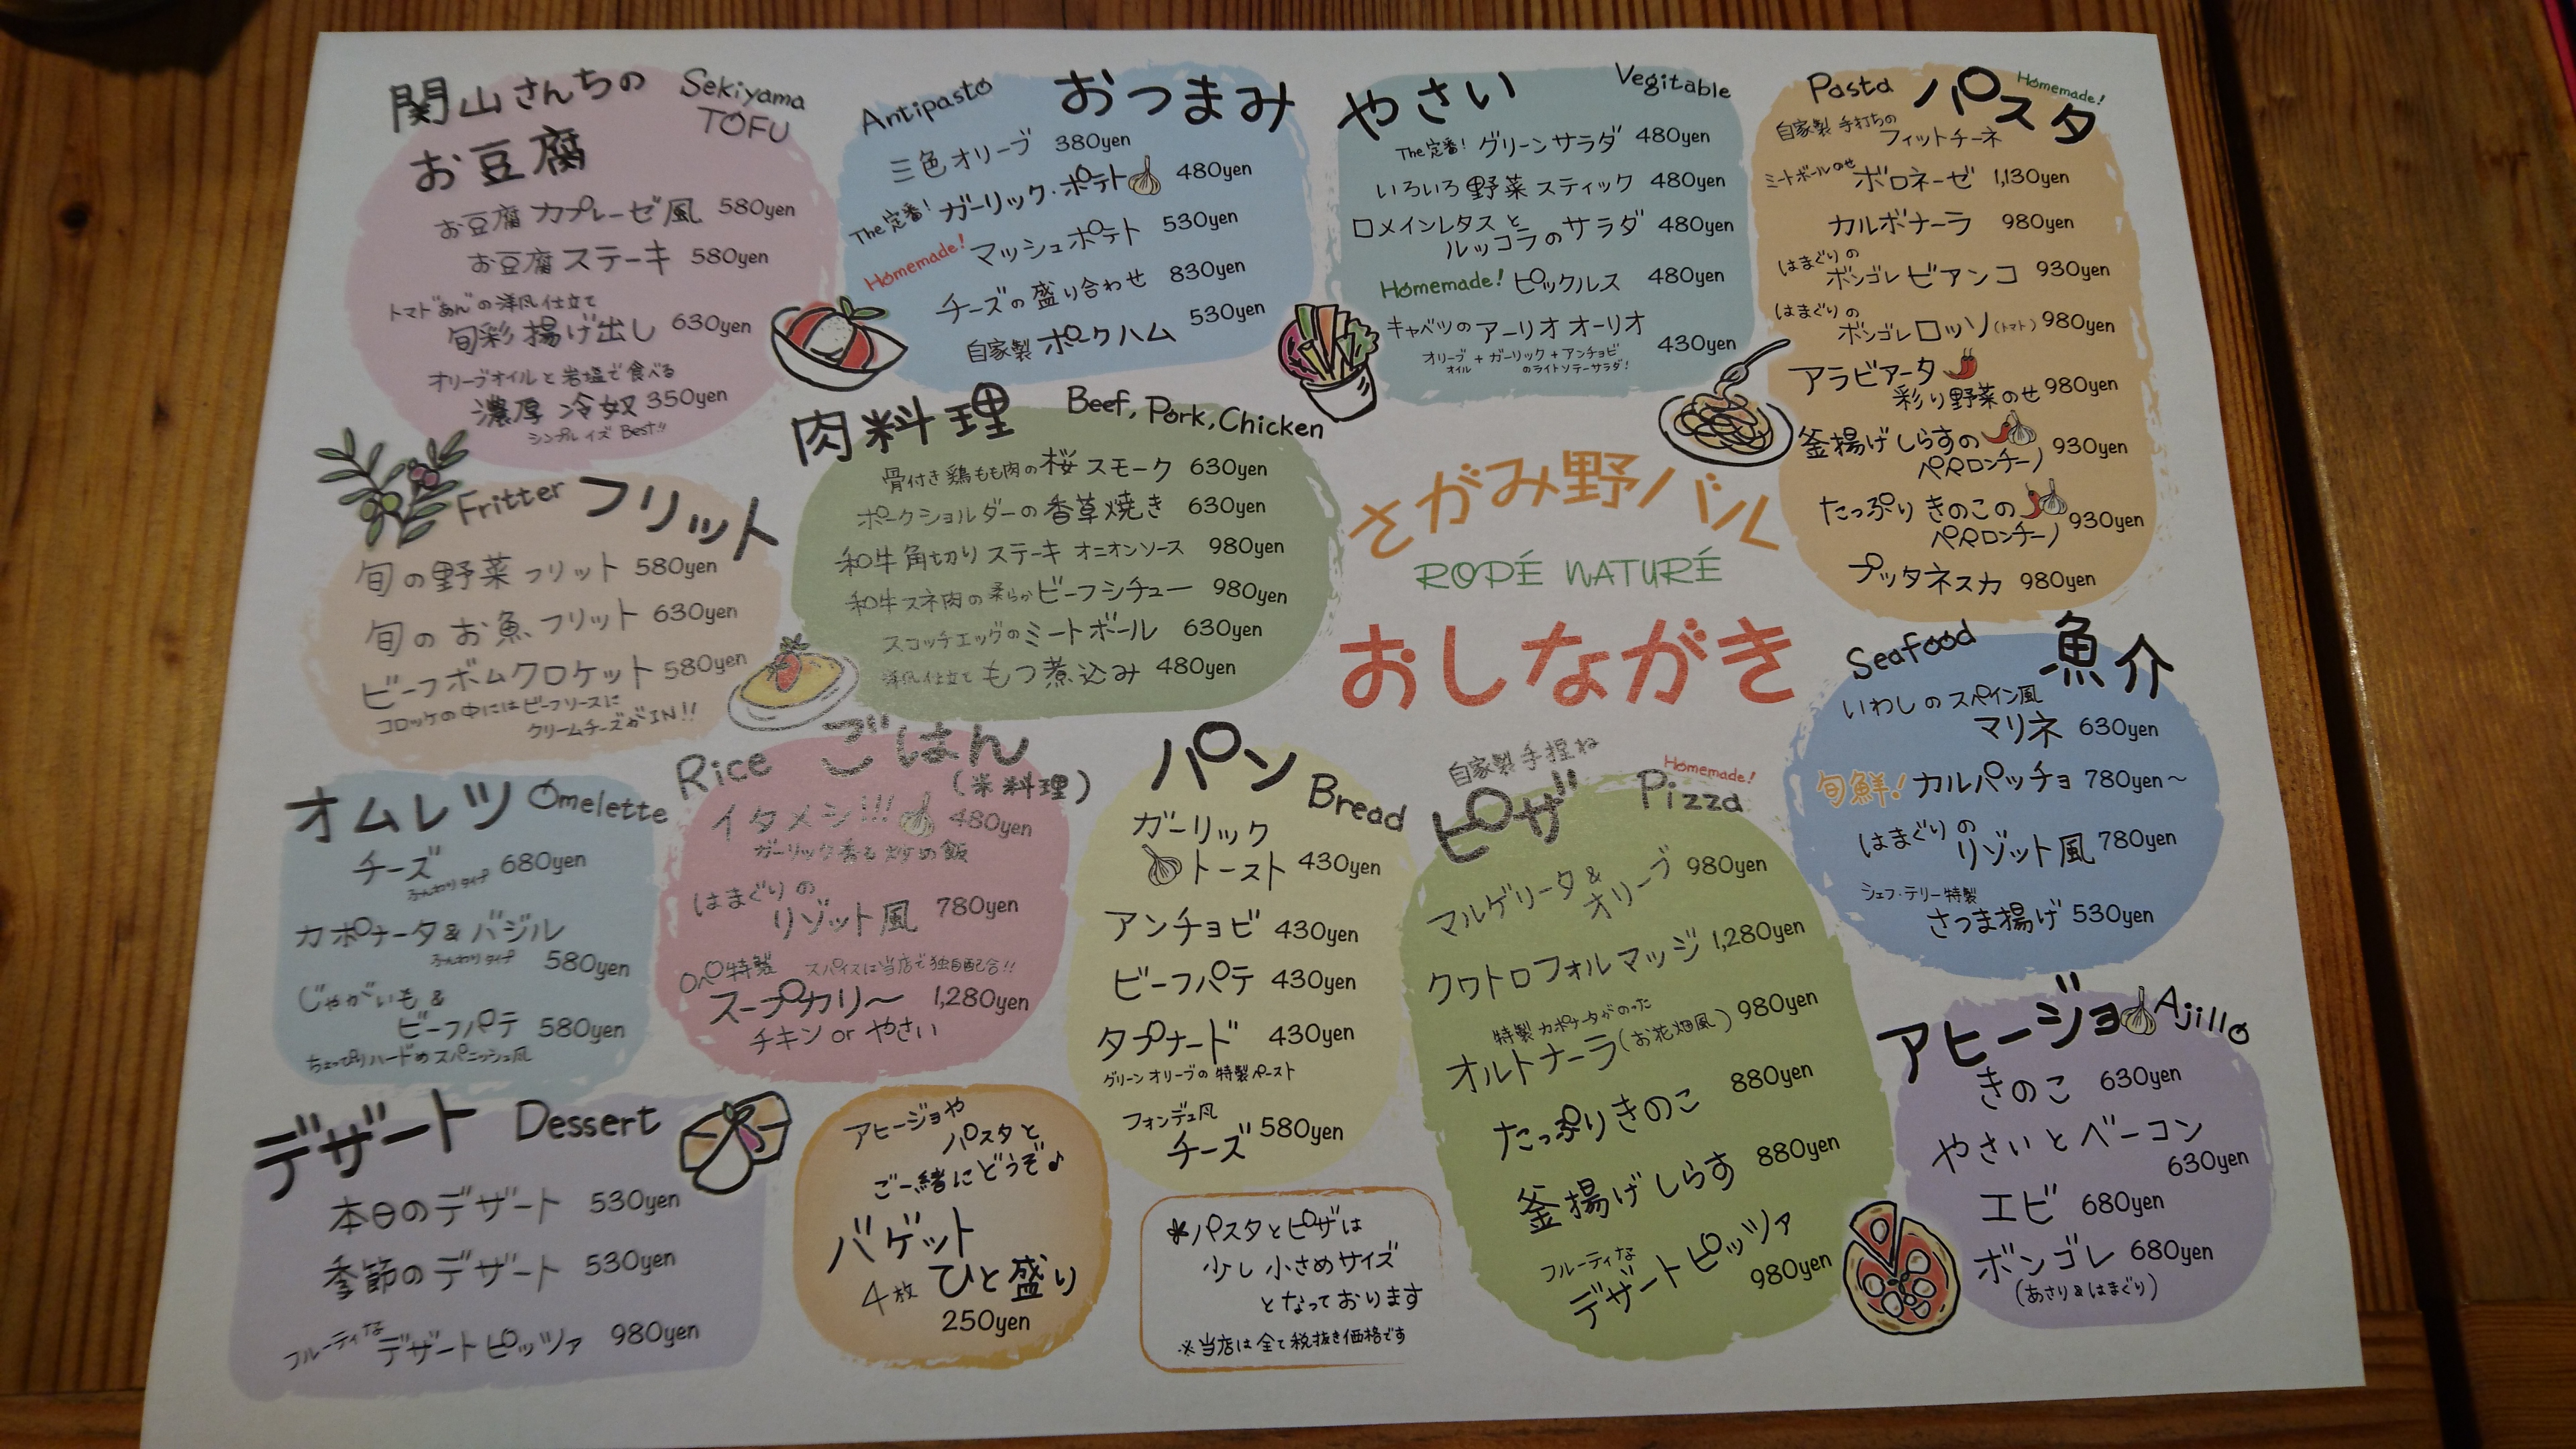 関山さんちの
Sekiyama
TOFU
お豆腐
お豆腐 カプレーゼ風 580yen
お豆腐 ステーキ 580yen
トマト"あん"の洋風仕立て
旬彩 揚げ出し 630yen
オリーブオイルと岩塩で食べる
濃厚 冷奴 350yen
シンプル イズ Best!!
Antipasto おつまみ
三色オリーブ 380yen
The定番! ガーリック・ポテト 480yen
Homemade! マッシュポテト 530yen
チーズの盛り合わせ 830yen
自家製 ポークハム 530yen
やさい Vegitable
The定番! グリーンサラダ 480yen
いろいろ野菜スティック 480yen
ロメインレタスと
ルッコラのサラダ 480yen
Homemade! ピックルス 480yen
キャベツのアーリオオーリオ 430yen
オリーブオイル+ガーリック+アンチョビ
のライトソテーサラダ!
Pasta パスタ Homemade!
自家製 手打ちの
フィットチーネ
ミートボールのせ ボロネーゼ 1,130yen
カルボナーラ 980yen
はまぐりの
ボンゴレビアンコ 930yen
はまぐりの
ボンゴレロッソ(トマト) 980yen
アラビアータ
彩り野菜のせ 980yen
釜揚げしらすの
ペペロンチーノ 930yen
たっぷりきのこの
ペペロンチーノ 930yen
プッタネスカ 980yen
肉料理 Beef, Pork, Chicken
骨付き鶏もも肉の桜スモーク 630yen
ポークショルダーの香草焼き 630yen
和牛角切りステーキ オニオンソース 980yen
和牛スネ肉の柔らかビーフシチュー 980yen
スコッチエッグのミートボール 630yen
洋風仕立て もつ煮込み 480yen
さがみ野バル
ROPÉ NATURÉ
おしながき
Fritter フリット
旬の野菜フリット 580yen
旬のお魚フリット 630yen
ビーフボムクロケット 580yen
コロッケの中にはビーフソースに
クリームチーズがIN!!
Seafood 魚介
いわしのスペイン風
マリネ 630yen
旬鮮! カルパッチョ 780yen～
はまぐりの
リゾット風 780yen
シェフ・テリー特製
さつま揚げ 530yen
オムレツ Omelette
チーズ 680yen
ふんわりタイプ
カポナータ&バジル
ふんわりタイプ 580yen
じゃがいも&
ビーフパテ 580yen
ちょっぴりハードめスパニッシュ風
Rice ごはん
(米料理)
イタメシ!!! 480yen
ガーリック香る炒め飯
はまぐりの
リゾット風 780yen
特製 スパイスは当店で独自配合!!
スープカリ～ 1,280yen
チキン or やさい
パン Bread
ガーリック
トースト 430yen
アンチョビ 430yen
ビーフパテ 430yen
タプナード 430yen
グリーンオリーブの特製ペースト
フォンデュ風
チーズ 580yen
自家製手捏ね
ピザ Pizza Homemade!
マルゲリータ&
オリーブ 980yen
クワトロフォルマッジ 1,280yen
特製カポナータがのった
オルトナーラ(お花畑風) 980yen
たっぷりきのこ 880yen
釜揚げしらす 880yen
フルーティな
デザートピッツァ
980yen
アヒージョ Ajillo
きのこ 630yen
やさいとベーコン
630yen
エビ 680yen
ボンゴレ 680yen
(あさり&はまぐり)
デザート Dessert
本日のデザート 530yen
季節のデザート 530yen
フルーティなデザートピッツァ 980yen
アヒージョや
パスタと
ご一緒にどうぞ♪
バゲット
4枚 ひと盛り
250yen
＊パスタとピザは
少し小さめサイズ
となっております
※当店は全て税抜き価格です